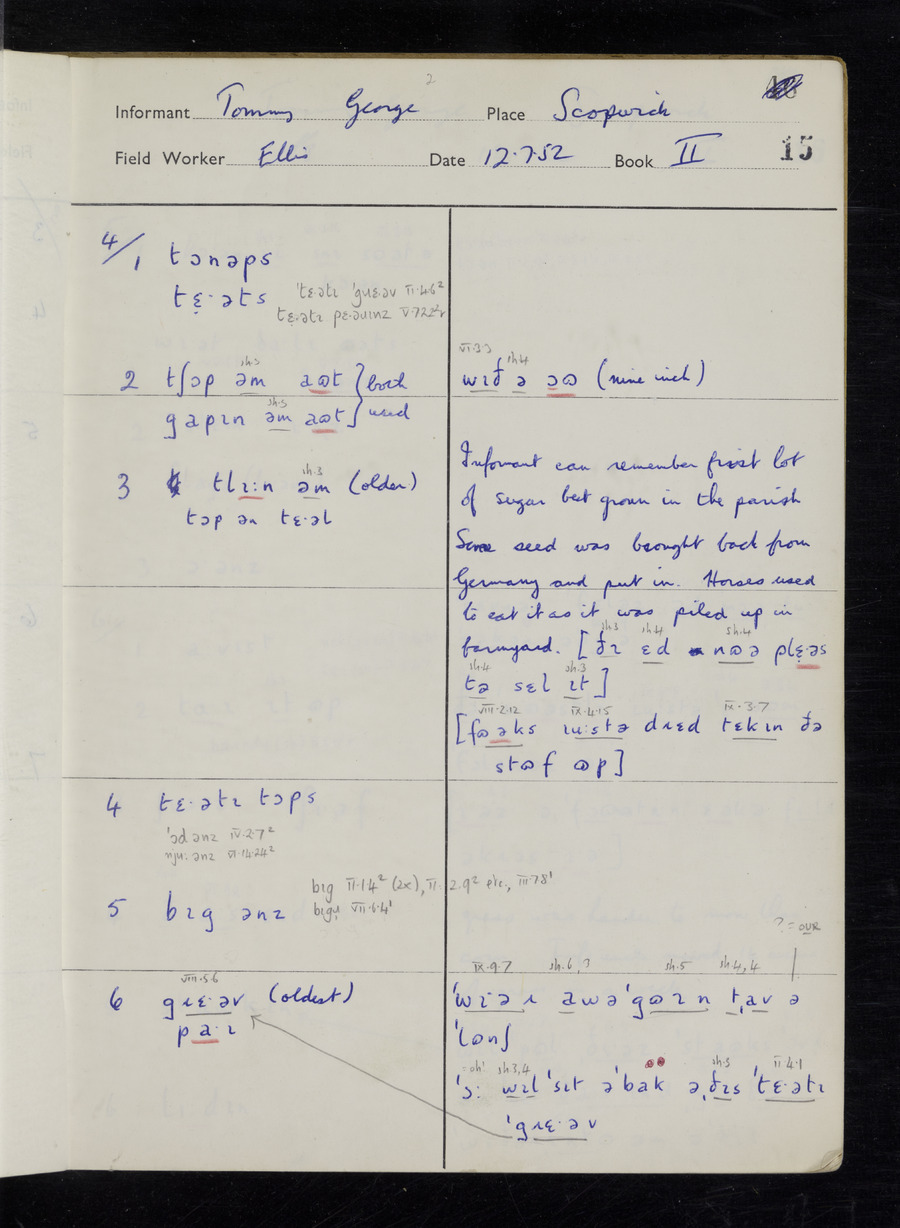 2
Informant Tommy George Place Scopwick
Field Worker Ellis Date 12.7.52 Book II 15
4/1 tənəps
tɛ̣·əts 'tɛ·ətɪ 'gɹɛ·əv II·4·6²
tɛ·ətɪ pɛ·əɹɪnz V·7·22²
2 tʃɔp əm aʊt } both
sh.5
gapɪn əm aʊt } used
sh.5
3 tlɪ:n əm (older)
sh.3
tɔp ən tɛ·əl
4 tɛ·ətɪ tɔps
'ɔd ənz IV·2·7²
nju: ənz VI·14·24²
5 bɪg ənz
bɪg II·1·4² (2x), II·2·9² etc., III·7·8¹
bɪgɪ VII·6·4¹
VIII·5·6
6 gɹɛ·əv (oldest)
pa·ɪ
VI·3·3 sh.4
wɪð ə ɔʊ (nine inch)
Informant can remember first lot
of sugar beet grown in the parish
Some seed was brought back from
Germany and put in. Horses used
to eat it as it was piled up in
sh.3 sh.4 sh.4
farmyard. [ðɪ ɛd nʊə plɛ̣əs
sh.4 sh.3
tə sɛl ɪt]
VIII·2·12 IX·4·15 IX·3·7
[fʊəks ɹu:stə dɹɛd tɛkɪn ðə
stʊf ʊp]
? = OUR
IX·9·7 sh.6,3 sh.5 sh.4,4
'wɪ·ə ɹ awə'gʊɪn t,av ə
'lʊnʃ
= oh! sh3,4 sh.5 II·4·1
'ɔ: wɪl 'sɪt ə'bak ə,ðɪs 'tɛ·ətɪ
'gɹɛ·əv